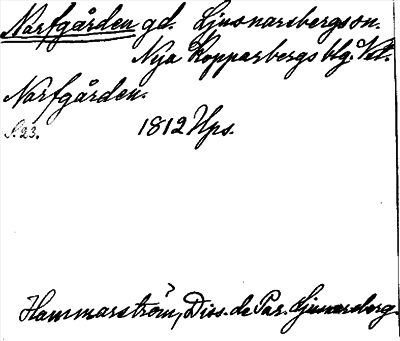 Norfgården gd. Ljusnarsbergs sn.
Nya Kopparbergs blg. Vst.
Norfgården.
S. 23. 1812 Ups.
Hammarström, Diss. de Par. Ljusnarsberg.